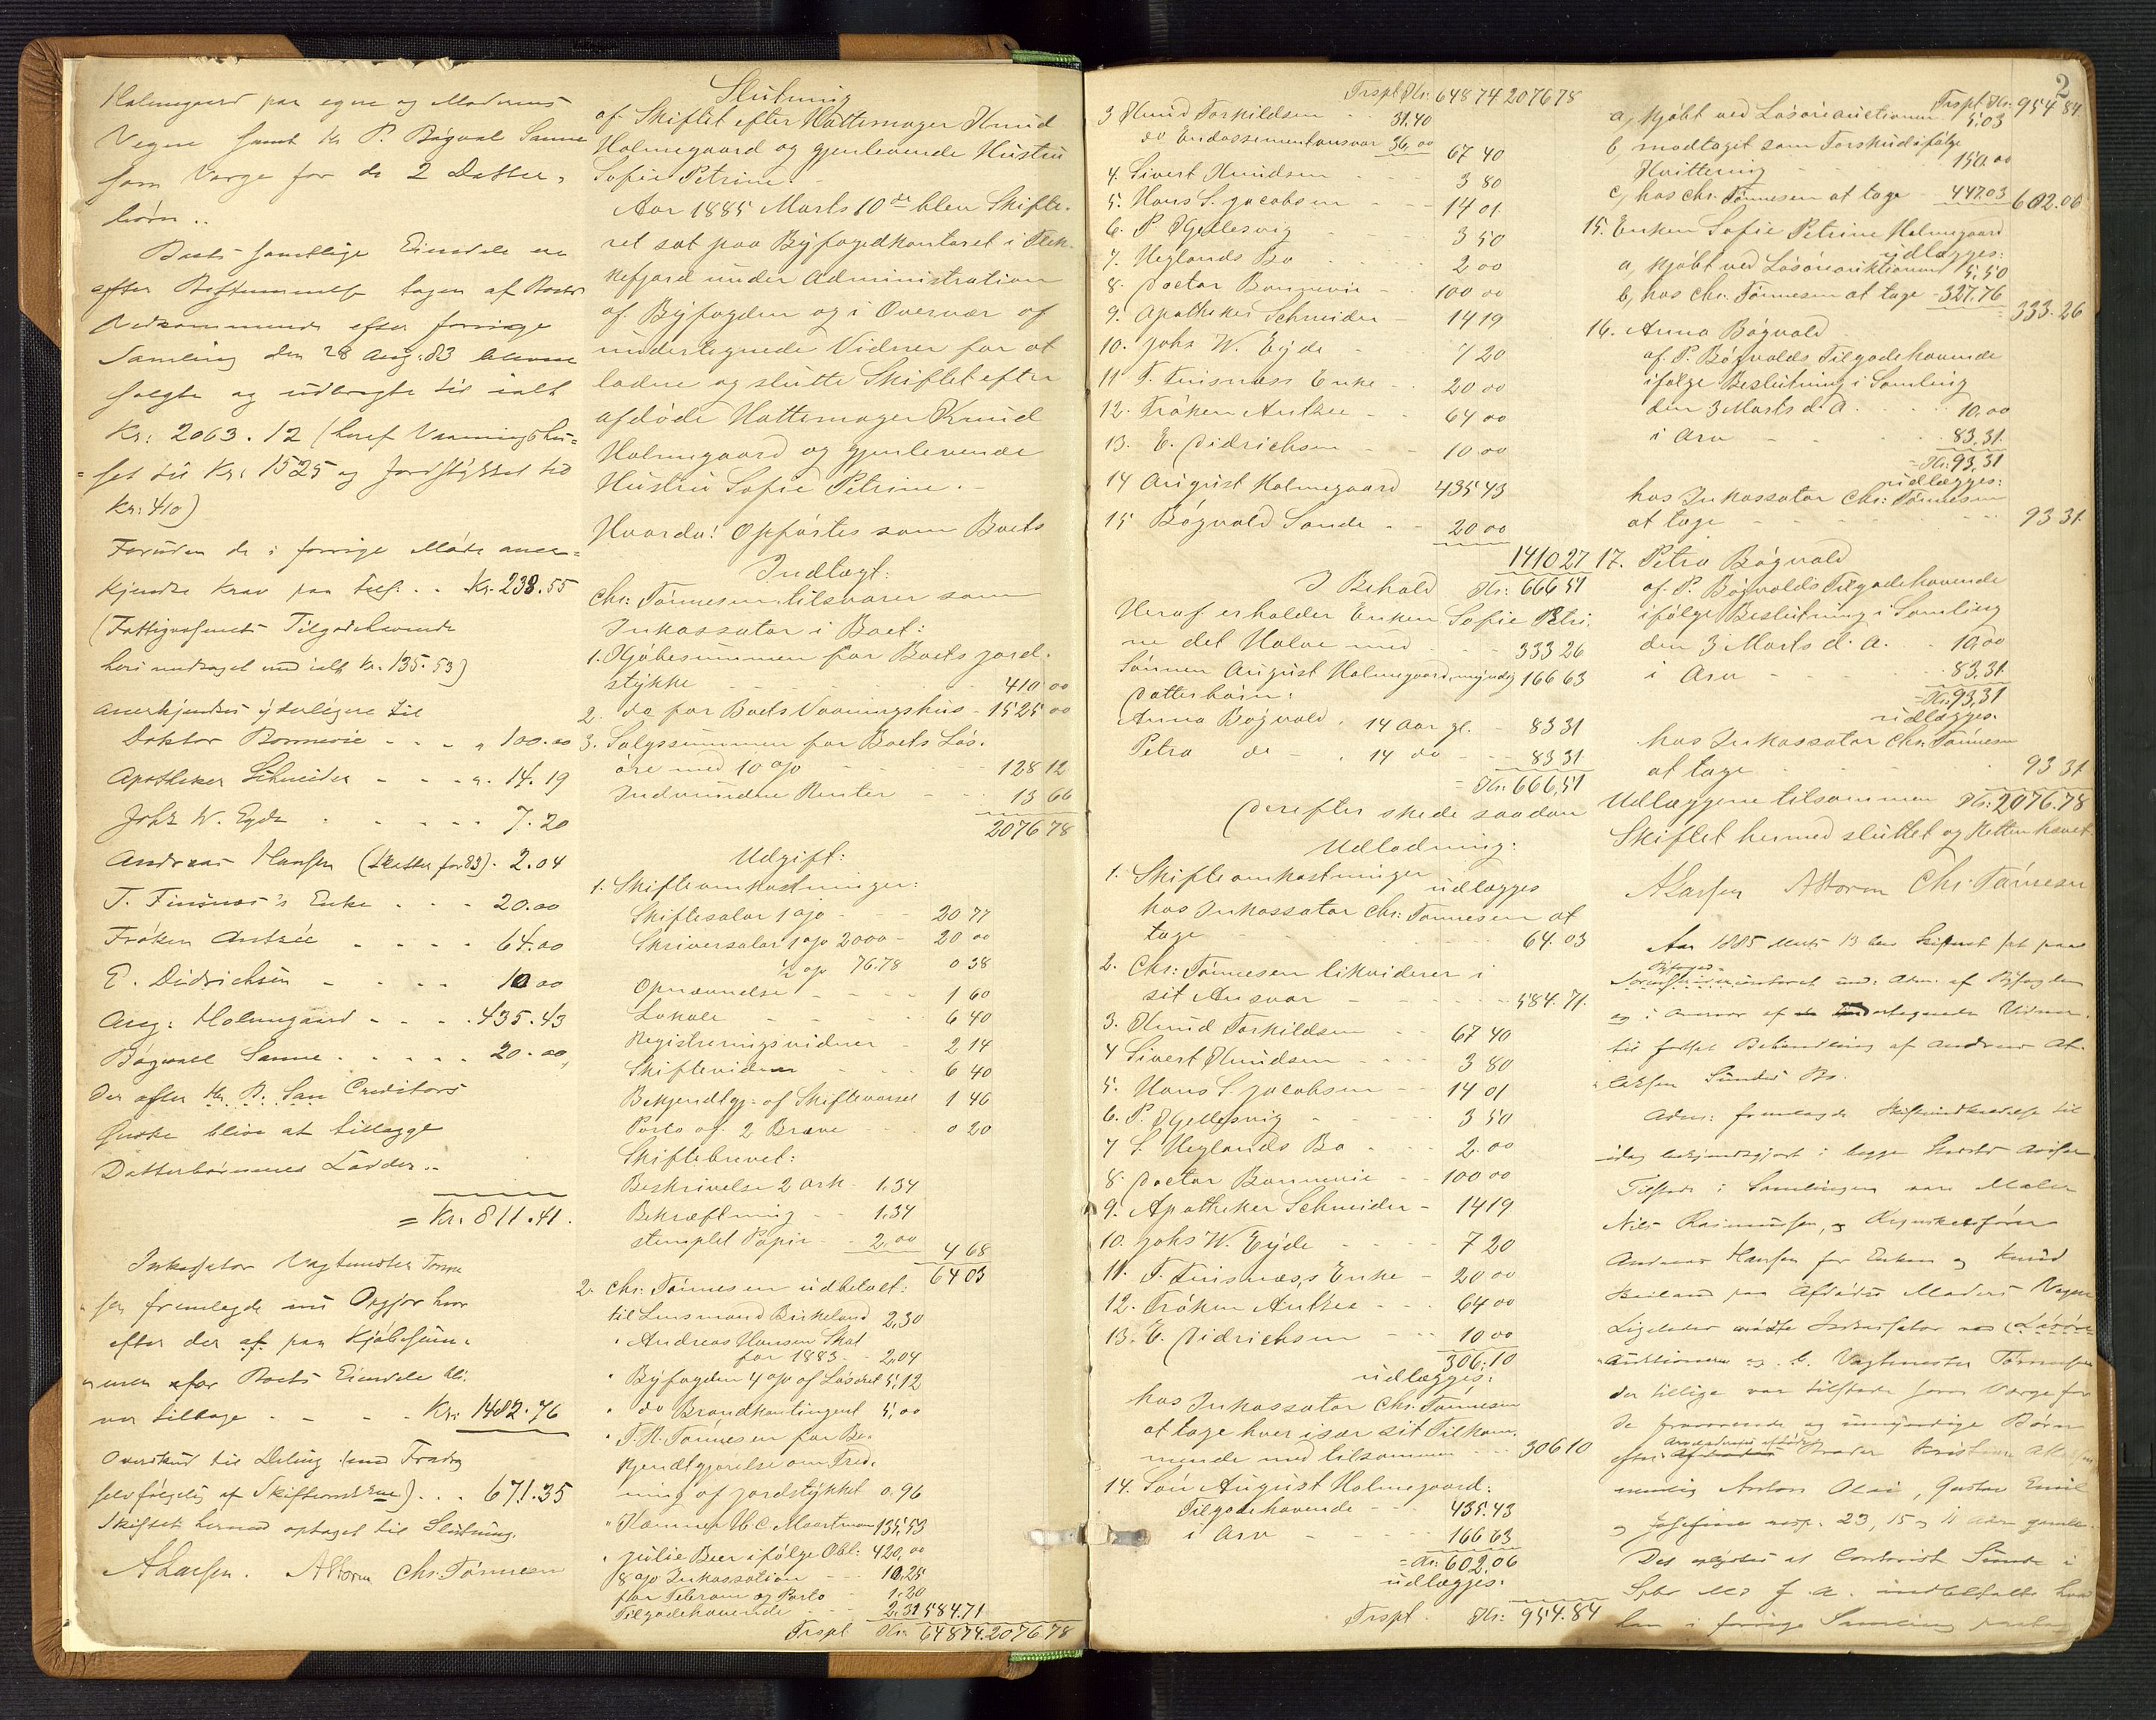 Holmegaard paa egne og Moderens
Vegne samt Hr P. Bøgvald Sanne
som Værge for de 2 Datter-
børn..
Boets samtlige Eiendele ere
efter Bestemmelse tagen af Boets
Vedkommende efter forrige
Samling den 28 Aug: 83 blevne
solgte og udbragte til ialt
Kr: 2063.12 (heraf Vaaningshu-
set til Kr: 1525 og Jordstykket til
Kr: 410)
Foruden de i forrige Møde aner-
kjendte Krav paa tils: .. Kr. 238.55
(Fattigvæsenets Tilgodehavende
heri medtaget med ialt Kr. 135.53)
anerkjendtes yderligere til
Doktor Bonnevie - - - " 100.00
Apotheker Schneider - - - ". 14.19
Johs W. Eyde . - - - - . 7.20
Andreas Hansen (Skatter for 83). 2.04
T. Finsnæs's Enke - - - 20.00
Frøken Antzée - - - - 64.00
E. Didrichsen - - - - 10.00
Aug: Holmegaard - - - - .435.43
Bøgvald Sanne. - - - - . 20.00,
der efter Hr. B. San Creditors
Ønske blive at tillægge
Datterbørnenes Lodder..
= Kr. 811.41.
Inkassator Vagtmester Tønne-
sen fremlagde nu Opgjør hvor
efter der af paa Kjøbesum-
merne for Boets Eiendele bli-
ver tilbage - - - - Kr: 1482.76
Overskud til Deling (med Fradrag
selvfølgelig af Skifteomk:ne). . . 671.35
Skiftet hermed optaget til Slutning.
A Larsen. A Storm Chr. Tønnesen
Slutning
af Skiftet efter Hattemager Knud
Holmegaard og gjenlevende Hustru
Sofie Petrine.
Aar 1885 Marts 10de blev Skifte-
ret sat paa Byfogedkontoret i Flek-
kefjord under Administration
af Byfogden og i Overvær af
undertegnede Vidner for at
lodne og slutte Skiftet efter
afdøde Hattemager Knud
Holmegaard og gjenlevende
Hustru Sofie Petrine.-
Hvorda: Opførtes som Boets
Indtægt:
Chr: Tønnesen tilsvarer som
Inkassator i Boet:
1. Kjøbesummen for Boets Jord-
stykke - - - - - 410 00
2. do for Boets Vaaningshus - 1525 00
3. Salgssummen for Boets Løs-
øre med 10 o/o - - - 128 12
Indvundne Renter - - - 13 66
2076 78
Udgift:
1. Skifteomkostninger:
Skiftesalær 1 o/o - - - 20 77
Skriversalær 1 o/o 2000 - 20 00
1/2 o/o 76.78 0 38
Opnævnelse - - - - 1 60
Lokale - - - - 6 40
Registreringsvidner - 2 14
Skiftevidner - - - 6 40
Bekjendtgj: af Skiftevarsel 1 46
Porto af 2 Breve - - 0 20
Skiftebrevet:
Beskrivelse 2 Ark - 1.34
Bekræftning - - 1.34
stemplet Papir - - 2.00 4 68
64 03
2. Chr: Tønnesen udbetalt:
til Lensmand Birkeland 2,30
" Andreas Hansen Skat
for 1883 - - 2.04
" Byfogden 4 o/o af Løsøret 5,12
" do Brandkontingent 5,00
" T. H. Tønnesen for Be-
kjendtgjørelse om Fred-
ning af Jordstykket 0.96
" Kæmner H C. Moortman 135,53
" Julie Beer ifølge Obl: 420,00
8 o/o Inkassation - - - 10.25
for Telegram og Porto - 1.20
Tilgodehavende - - - 2.31 584.71
Trspt Kr. 648 74. 2076.78
2
Trspt Kr: 648 74 2076 78
3 Knud Torkildsen - - 31.40
do Endossementansvar 36.00 67 40
4. Sivert Knudsen - - - 3 80
5. Hans S. Jacobsen - - 14 01
6. P Kjellesvig - - - 3 50
7. Heglands Bo - - - 2 00
8. Doctor Bonnevie - - 100 00
9. Apotheker Schneider - 14 19
10. Johs W. Eyde - - 7 20
11 T. Finsnæss Enke - - 20 00
12. Frøken Antzee - - 64 00
13. E. Didrichsen - - 10 00
14 August Holmegaard 435 43
15 Bøgvald Sande - - 20 00
1410 27
I Behold Kr: 666 51
Heraf erholder Enken Sofie Petri-
ne det Halve med - - - 333 26
Sønnen August Holmegaard, myndig 166 63
Datterbørn:
Anna Bøgvald, 14 Aar gl. - 83 31
Petra do - , 14 do - - 83 31
= Kr: 666,51
Derefter skede saadan
Udlodning:
1. Skifteomkostninger
udlægges
hos Inkassator Chr: Tønnesen at
tage - - - - - - 64.03
2. Chr: Tønnesen likviderer i
sit Ansvar - - - - - 584.71.
3. Knud Torkildsen - - 67 40
4 Sivert Knudsen - - - - 3 80
5. Hans S. Jacobsen - - 14 01
6. P. Kjellesvig - - - - 3 50
7 S. Heglands Bo - - - 2.00
8. Doctor Bonnevie - - 100 00
9. Apotheker Schneider - 14 19
10. Johs W. Eyde - - - - 7 20
11. T. Finsnæss Enke - 20 00
12. Frøken Antzee - - - 64 00
13. E. Didrichsen - - - 10 00
306.10
udlægges:
hos Inkassator Chr: Tønnesen
at tage hver især sit Tilkom-
mende med tilsammen - - - 306 10
14. Søn August Holmegaard:
Tilgodehavende - - - 435.43
i Arv - - - - - 166 63
= Kr: 602.06
udlægges:
Trspt. Kr: 954.84
Trspt Kr: 954 84.
a, kjøbt ved Løsøreauctionen 5.03
b, modtaget som Forskud ifølge
Kvittering - - - 150.00
c, hos Chr. Tønnesen at tage - 447.03 602.06
15. Enken Sofie Petrine Holmegaard
udlægges:
a, kjøbt ved Løsøreauktionen 5,50
b, hos Chr. Tønnesen at tage - 327.76 333.26
16. Anna Bøgvald
af P. Bøgvalds Tilgodehavende
ifølge Beslutning i Samling
den 3 Marts d. A. - - - 10,00
i Arv - - - - - 83,31.
= Kr: 93,31
udlægges:
hos Inkassator Chr: Tønnesen
at tage - - - - - - 93 31.
17. Petra Bøgvald
af P. Bøgvalds Tilgodehavende
ifølge Beslutning i Samling
den 3 Marts d. A. - 10,00
i Arv - - - - 83,31.
= Kr: 93,31
udlægges.
hos Inkassator Chr. Tønnesen
at tage - - - - - 93 31
Udlæggene tilsammen Kr: 2076.78
Skiftet hermed sluttet og Retten hævet.
A Larsen A Storm Chr. Tønnesen
Aar 1885 Marts 13 blev Skifteret sat paa
Byfoged-
Sorenskriverkontoret und. Adm. af Byfogden
og i Overvær af undertegnede Vidner
til fortsat Behandling af Andreas At-
laksen Sundes Bo.
Adm: fremlagde Skifteindkaldelse til
idag bekjendtgjort i begge Stedets Aviser
Tilstede i Samlingen vare Maler
Nils Rasmussen, og Regnskabsfører
Andreas Hansen for Enken og Knud
paa Afdødes Moders Vegne
Ligeledes mødte Inkassator ved Løsøre-
auktionen Vagtmester Tønnesen
der tillige var tilstede som Værge for
de fraværende og umyndige Børn
efter Broder
nemlig Anton Olai, Gustav Emil
og Josefine resp. 23, 15 og 11 Aar gamle.
Det oplystes at Contorist Sunde i
f. A. indbetalte hvad
han i forrige Samling